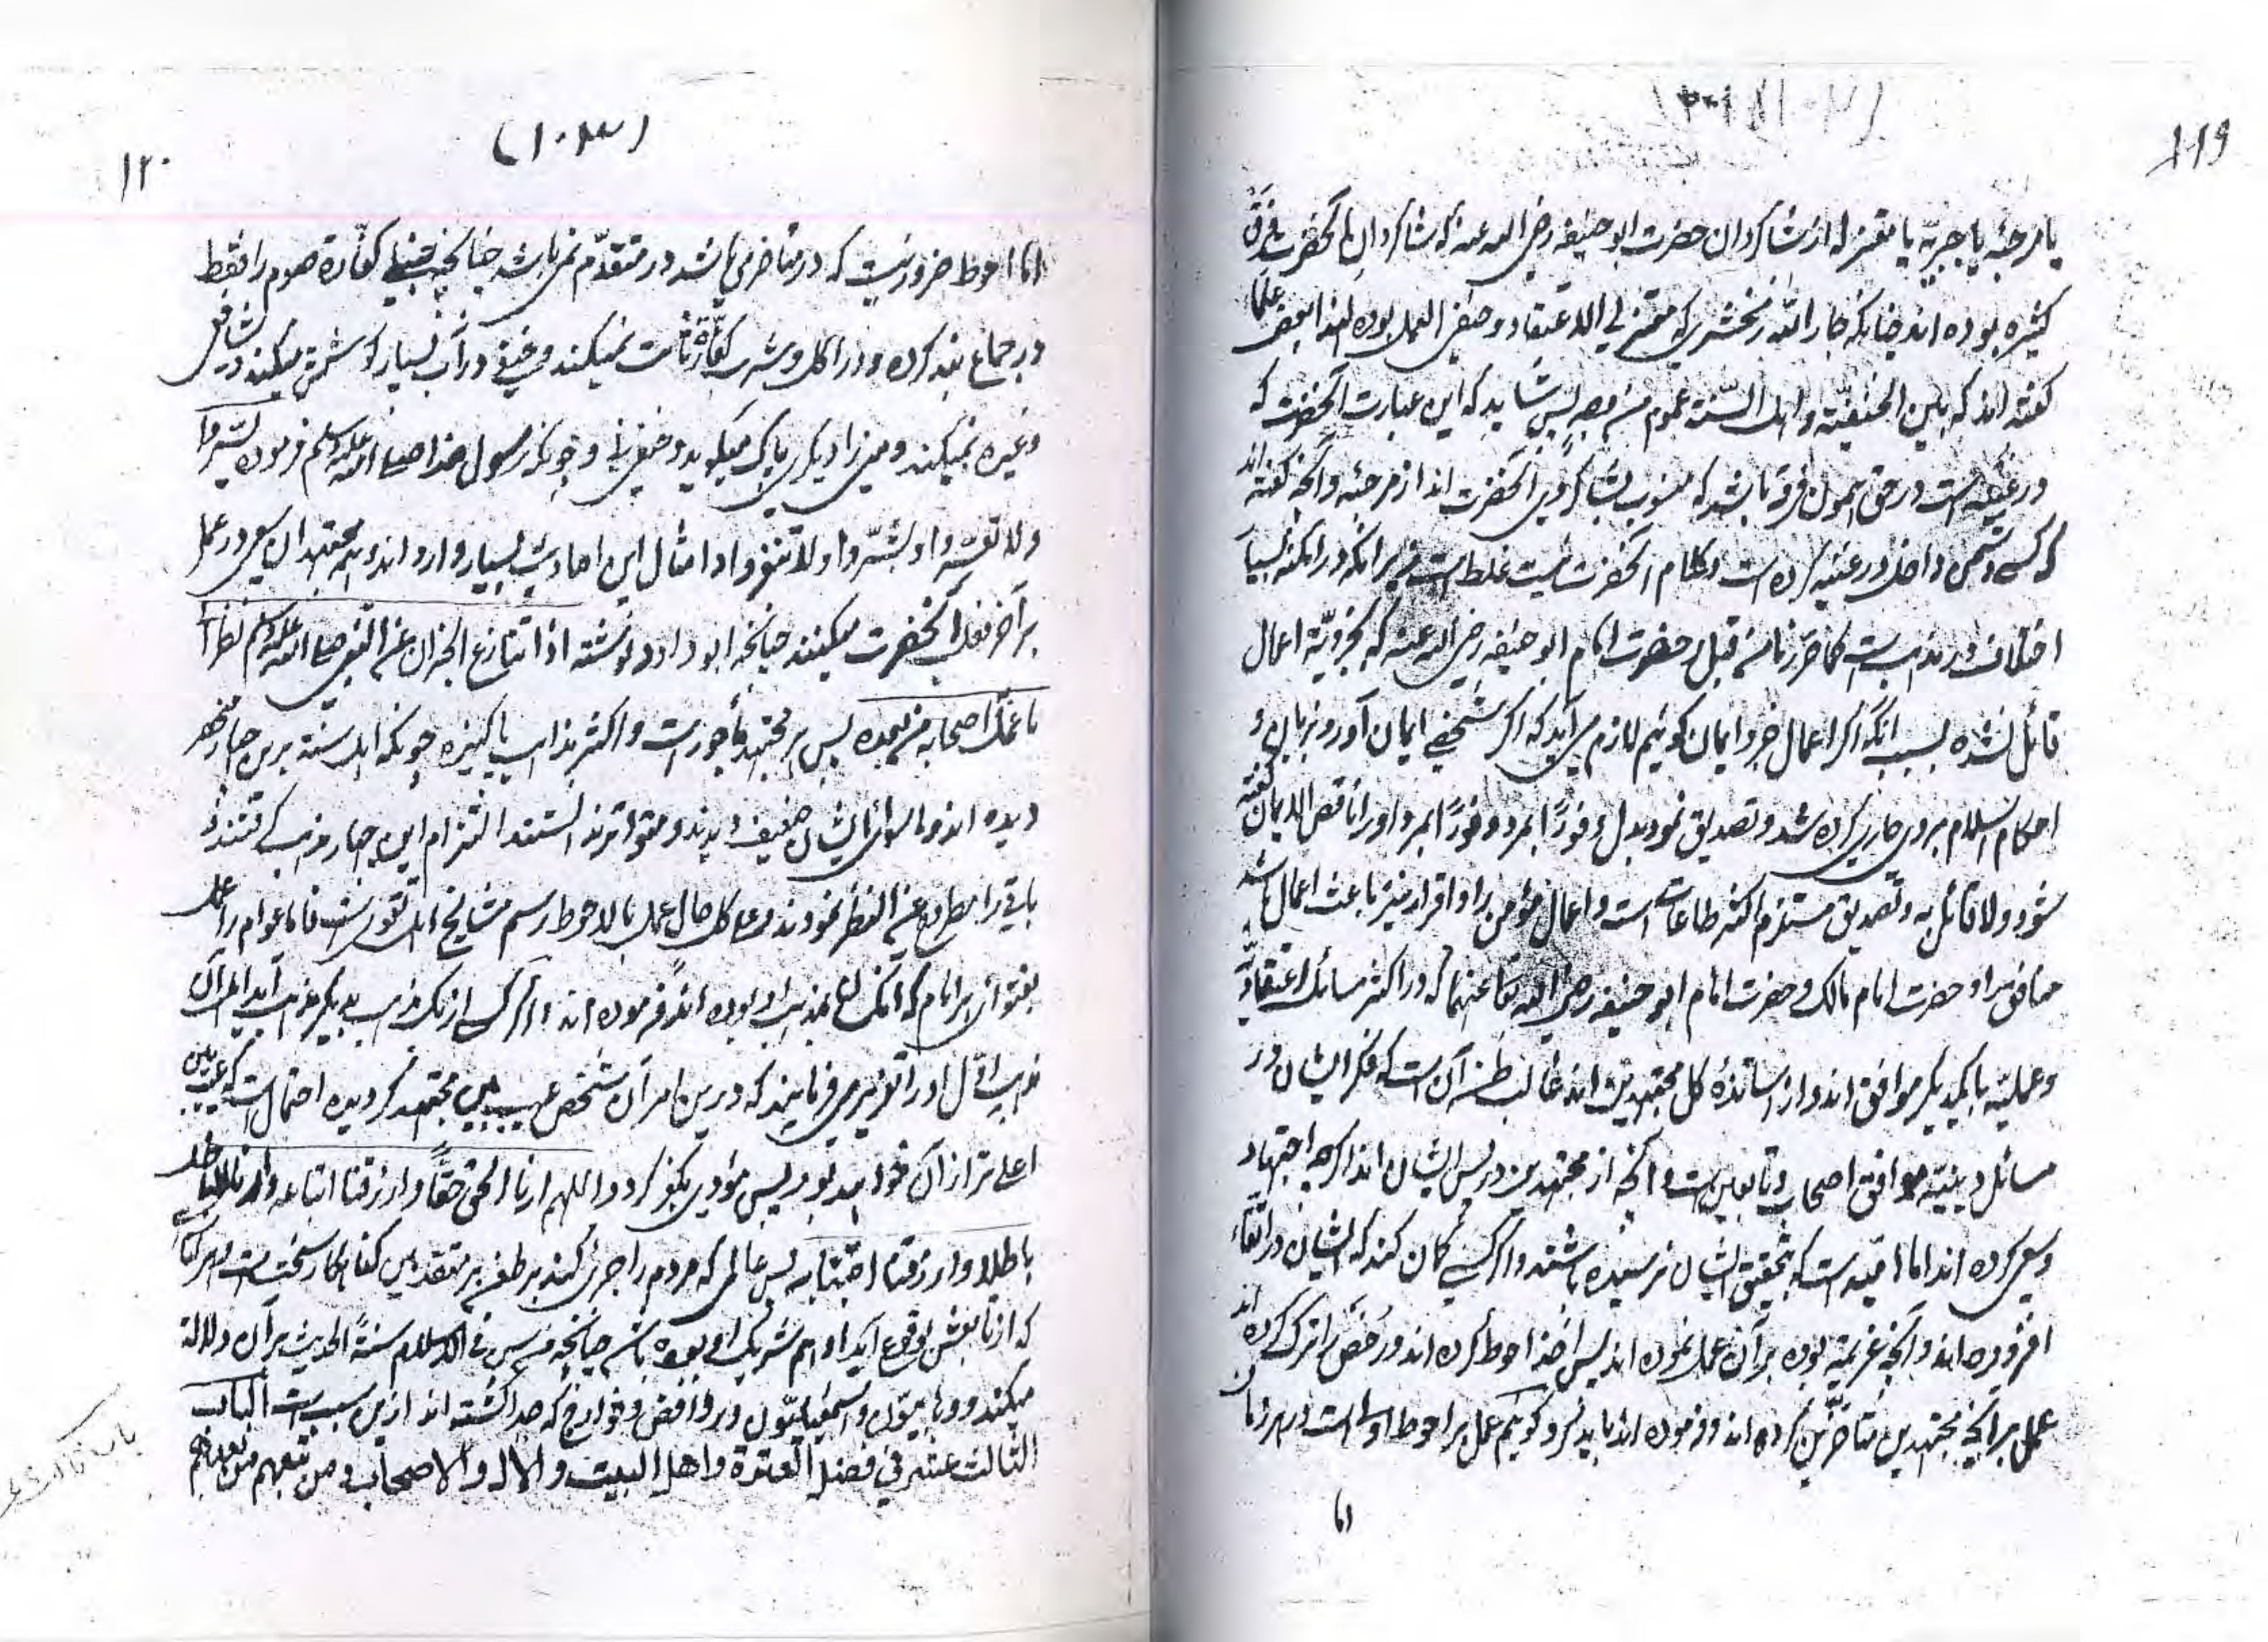 ۱۱۹
یا مرجئه یا جبریّه یا معتزله از شاکردان حضرت ابو حنیفه رضی الله عنه که شاکردان آنحضرت فرق
کثیره بوده اند چنانکه جار الله زمخشری که معتزلی الاعتقاد و حنفی العمل بوده لهذا بعض علما
کفته اند که بین الحنفیّة و اهل السّنة عموم من وجه پس شاید که این عبارت آنحضرت که
در غنیه است در حق همون فرقه باشد که منسوب بشاکردی آنحضرت اند از مرجئه و آنچه کفته اند
که کسی دشمن داخل در غنیه کرده است و کلام آنحضرت نیست غلط است زیرانکه در امکنه بسیار
اختلاف در مذهب است حضرت امام ابو حنیفه رضی الله عنه که بجزویّة اعمال
قائل نشده بسبب آنکه اکر اعمال جزو ایمان کوئیم لازم می آید که اکر شخصی ایمان آورد بزبان و
احکام اسلام بروی جاری کرده شد و تصدیق نمود بدل و فوراً بمرد او را ناقص الایمان کفته
شود و لا قائل به و تصدیق مستلزم اکثر طاعات است و اعمال مؤمن را و اقرار نیز باعث اعمال باشد
منافق را و حضرت امام مالک و حضرت امام ابو حنیفه رضی الله تعا عنهما که در اکثر مسائل اعتقادیّه
و عملیّه با یکدیکر موافق اند و از اساتذهٔ کل مجتهدین اند غالب ظن آن است که فکر ایشان در
مسائل دینیّه موافق اصحاب و تابعین است و آنچه از مجتهدین در پس ایشان اند اکرچه اجتهاد
و سعی کرده اند اما امید است که بتحقیق ایشان نرسیده باشند و اکر کسی کمان کند که ایشان در اتقاء
افزوده اند و آنچه عزیمة بوده بر آن عمل نموده اند پس اخذ احوط کرده اند و رخص را ترک کرده اند
عمل بر آنچه مجتهدین متأخرین کرده اند و فرموده اند باید کرد کوئیم عمل بر احوط اولی است در هر زمان
اما
۱۲۰
(۱۰۳)
اما احوط ضرور نیست که در متأخر می باشد در متقدّم نمی باشد چنانچه حنفی کفّارة صوم را فقط
در جماع بند کرده و در اکل و شرب کفّارة ثابت نمیکند و حنفی در آب بسیار کوشش میکند و شافعی
و غیره نمیکند و منی را دیکری پاک میکوید و حنفی نی و چونکه رسول خدا صلی الله علیه وسلم فرموده یسّروا
ولا تعسّروا و بشّروا ولا تنفّروا و امثال این احادیث بسیار وارد اند و همه مجتهدان سعی در عمل
بر آخر فعل آنحضرت میکنند چنانچه ابو داود نوشته اذا تنازع الخبران عن النبی صلی الله علیه وسلم نظر الی
ما عمل اصحابه من بعده پس هر مجتهد مأجور است و اکثر مذاهب پاکیزه چونکه اهل سنة برین چهار منحصر
دیده اند و ماسوای ایشان ضعیف دیدند و متواتر ندانستند التزام این چهار مذهب کرفتند و
باقی را مطروح عن النظر نمودند و علی کل حال عمل بالاحوط رسم مشایخ اهل تقوی است فاما عوام را عمل
بفتوای هر امام که آنکس بمذهب او بوده اند فرموده اند و اکر کسی از یک مذهب بدیکر مذهب آید اهل آن
مذهب اوّل او را تعزیر می فرمایند که درین امر آن شخص عیب بین مجتهد کردیده احتمال است که عیب بین
اعلی تر از آن خواهد بود پس مؤدی بکفر کردد اللهم ارنا الحق حقّاً وارزقنا اتباعه وارنا الباطل
باطلاً وارزقنا اجتنابه پس عالمی که مردم را جری کند بر طعن بر متقدمین کفا کار سخت است هر کناه
که از تابعش بوقوع آید او هم شریک او بوده باشد چنانچه من سن فی الاسلام سنةً الحدیث بر آن دلالة
میکند و وهابیّون و اسمعیلیّون و روافض و خوارج که جدا کشته اند ازین سبب است الباب
الثالث عشر فی فضل العترة واهل البیت والآل والاصحاب ومن تبعهم من بعدهم